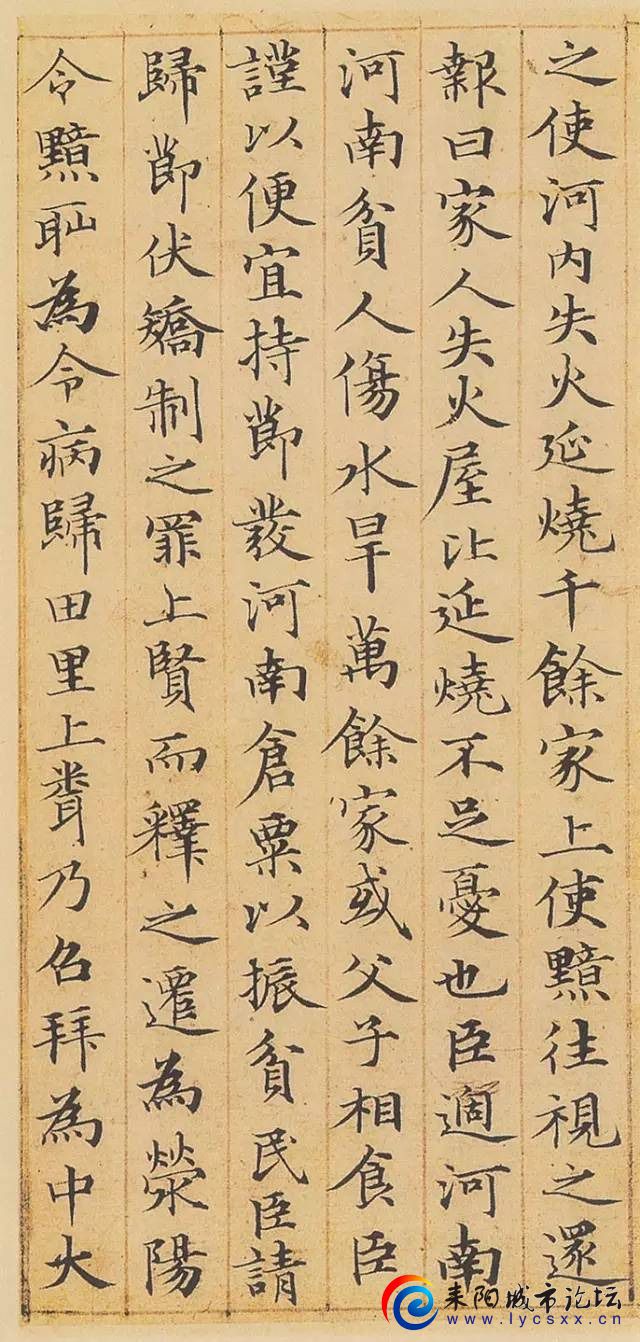 之使河内失火延燒千餘家上使黯往視之還
報曰家人失火屋比延燒不足憂也臣過河南
河南貧人傷水旱萬餘家或父子相食臣
謹以便宜持節發河南倉粟以振貧民臣請
歸節伏矯制之罪上賢而釋之遷為滎陽
令黯恥為令病歸田里上聞乃召拜為中大
耒阳城市论坛
www.lycsxx.cn